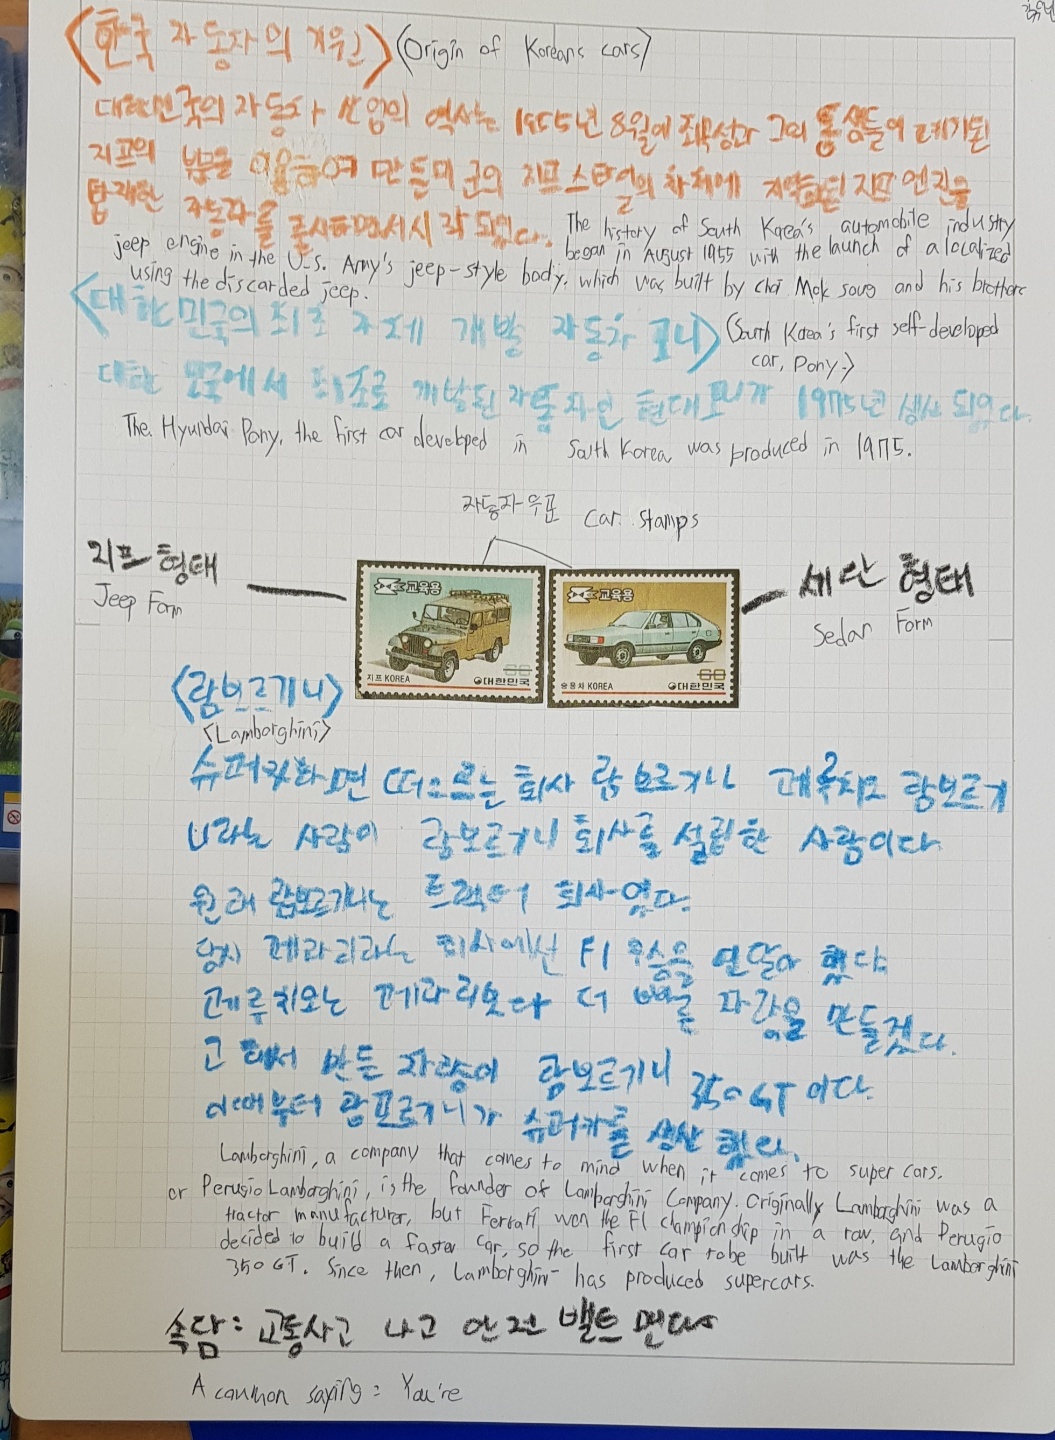 <한국 자동차의 기원> (Origin of Koreans cars)
대한민국의 자동차 산업의 역사는 1955년 8월에 최무성과 그의 형제들이 폐기된
지프의 부품을 이용하여 만들 미군의 지프 스타일의 차체에 지역화된 지프 엔진을
탑재한 자동차를 출시하면서 시작 되었다.
The history of South Korea's automobile industry
began in August 1955 with the launch of a localized
jeep engine in the U-S. Army's jeep-style body, which was built by choi Mok soug and his brothers
using the discarded jeep.
<대한민국의 최초 자체 개발 자동차 포니> (South Korea's first self-developed
car, Pony>)
대한 민국에서 최초로 개발된 자동차인 현대포니가 1975년 생산 되었다.
The Hyundai Pony, the first car developed in South Korea was produced in 1975.
자동차우표 Car stamps
지프 형태
Jeep Form
세단 형태
Sedan Form
교육용
60
지프 KOREA 대한민국
교육용
60
승용차 KOREA 대한민국
<람보르기니>
<Lamborghini>
슈퍼카하면 떠오르는 회사 람보르기니 페루치오 람보르기
니라는 사람이 람보르기니 회사를 설립한 사람이다
원래 람보르기니는 트랙터 회사였다.
당시 페라리라는 회사에선 F1 우승을 연달아 했다
페루치오는 페라리보다 더 빠른 차량을 만들겠다.
고 해서 만든 차량이 람보르기니 350GT 이다.
이때부터 람프르기니가 슈퍼카를 생산 했다.
Lamborghini, a company that comes to mind when it comes to super cars.
or Perugio Lamborghini, is the founder of Lamborghini Company. Originally Lamborghini was a
tractor manufacturer, but Ferrari won the F1 championship in a row, and Perugio
decided to build a faster car, so the first car to be built was the Lamborghini
350 GT. Since then, Lamborghini has produced supercars.
속담: 교통사고 나고 안전 벨트 맨다
A common saying = You're